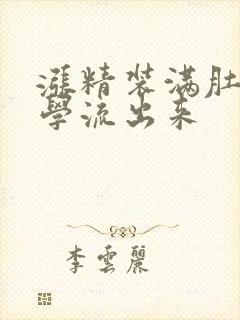 漲精装满肚
學流出来
李雲麗